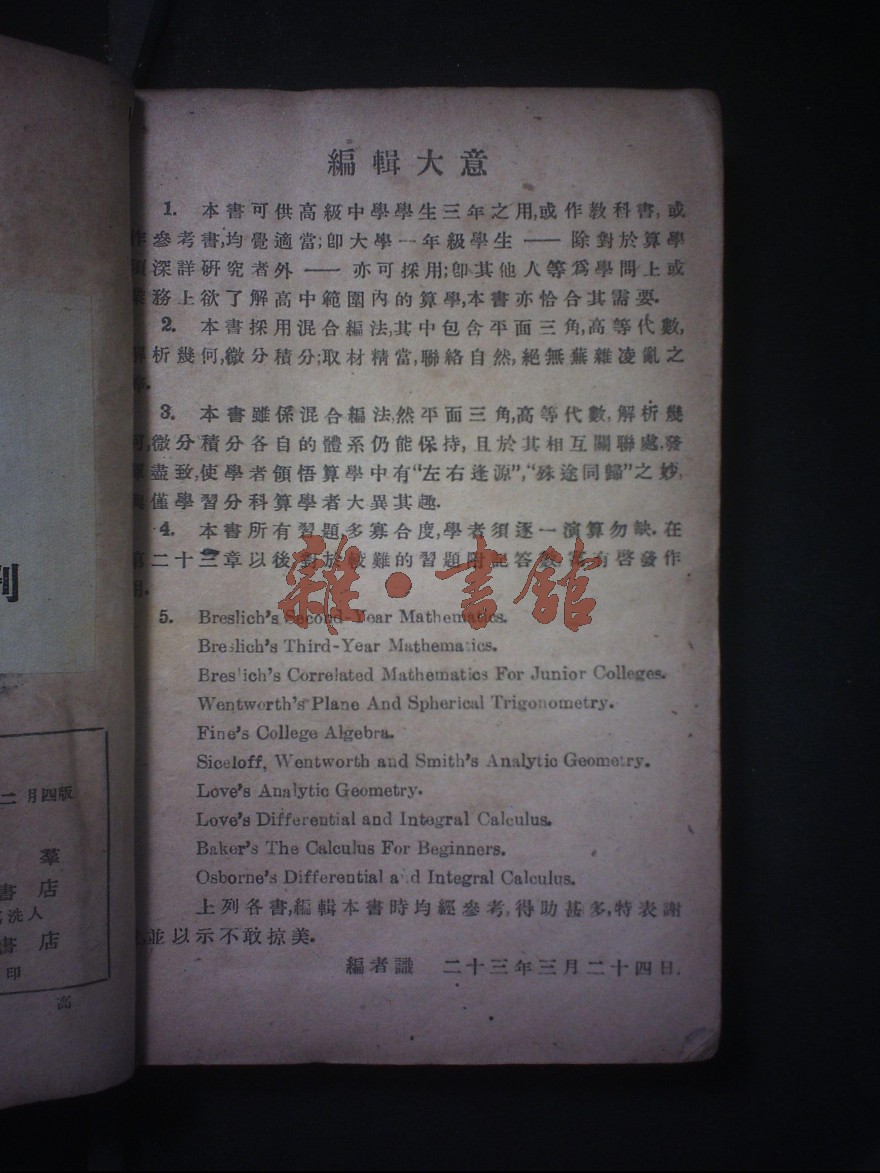 編輯大意
1. 本書可供高級中學學生三年之用,或作教科書,或
作參考書,均覺適當;卽大學一年級學生 —— 除對於算學
深詳研究者外 —— 亦可採用;卽其他人等爲學問上或
業務上欲了解高中範圍內的算學,本書亦恰合其需要.
2. 本書採用混合編法,其中包含平面三角,高等代數,
解析幾何,微分積分;取材精當,聯絡自然,絕無蕪雜凌亂之
3. 本書雖係混合編法,然平面三角,高等代數,解析幾
何,微分積分各自的體系仍能保持,且於其相互關聯處,發
盡致,使學者領悟算學中有“左右逢源”,“殊途同歸”之妙,
與僅學習分科算學者大異其趣.
4. 本書所有習題多寡合度,學者須逐一演算勿缺.在
第二十三章以後,對於較難的習題附記答數,寓有啓發作
用.
5. Breslich's Second-Year Mathematics.
Breslich's Third-Year Mathematics.
Breslich's Correlated Mathematics For Junior Colleges.
Wentworth's Plane And Spherical Trigonometry.
Fine's College Algebra.
Siceloff, Wentworth and Smith's Analytic Geometry.
Love's Analytic Geometry.
Love's Differential and Integral Calculus.
Baker's The Calculus For Beginners.
Osborne's Differential and Integral Calculus.
上列各書,編輯本書時均經參考,得助甚多,特表謝
並以示不敢掠美.
編者識 二十三年三月二十四日.
雜·書館
二月四版
羣
書店
洗人
書店
印